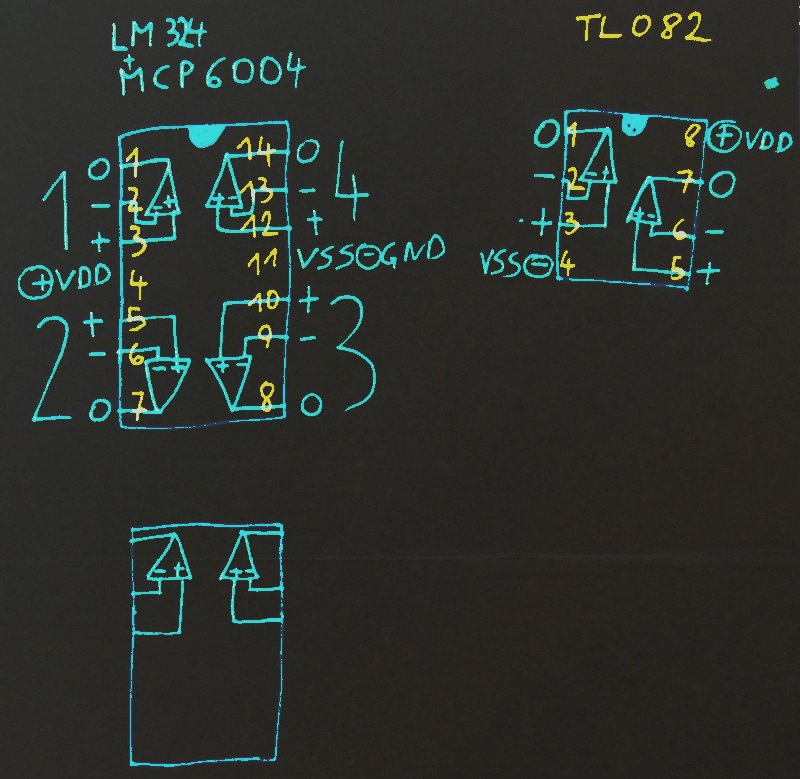 LM324
+
MCP6004
TL082
1
O 1 14 O
- 2 - + + - 13 -
+ 3 12 +
4
⊕VDD 4 11 VSS⊖GND
2
+ 5 10 +
- 6 - + + - 9 -
O 7 8 O
3
O 1 8 ⊕VDD
- 2 - + 7 O
+ 3 + - 6 -
VSS⊖ 4 5 +
- + + -